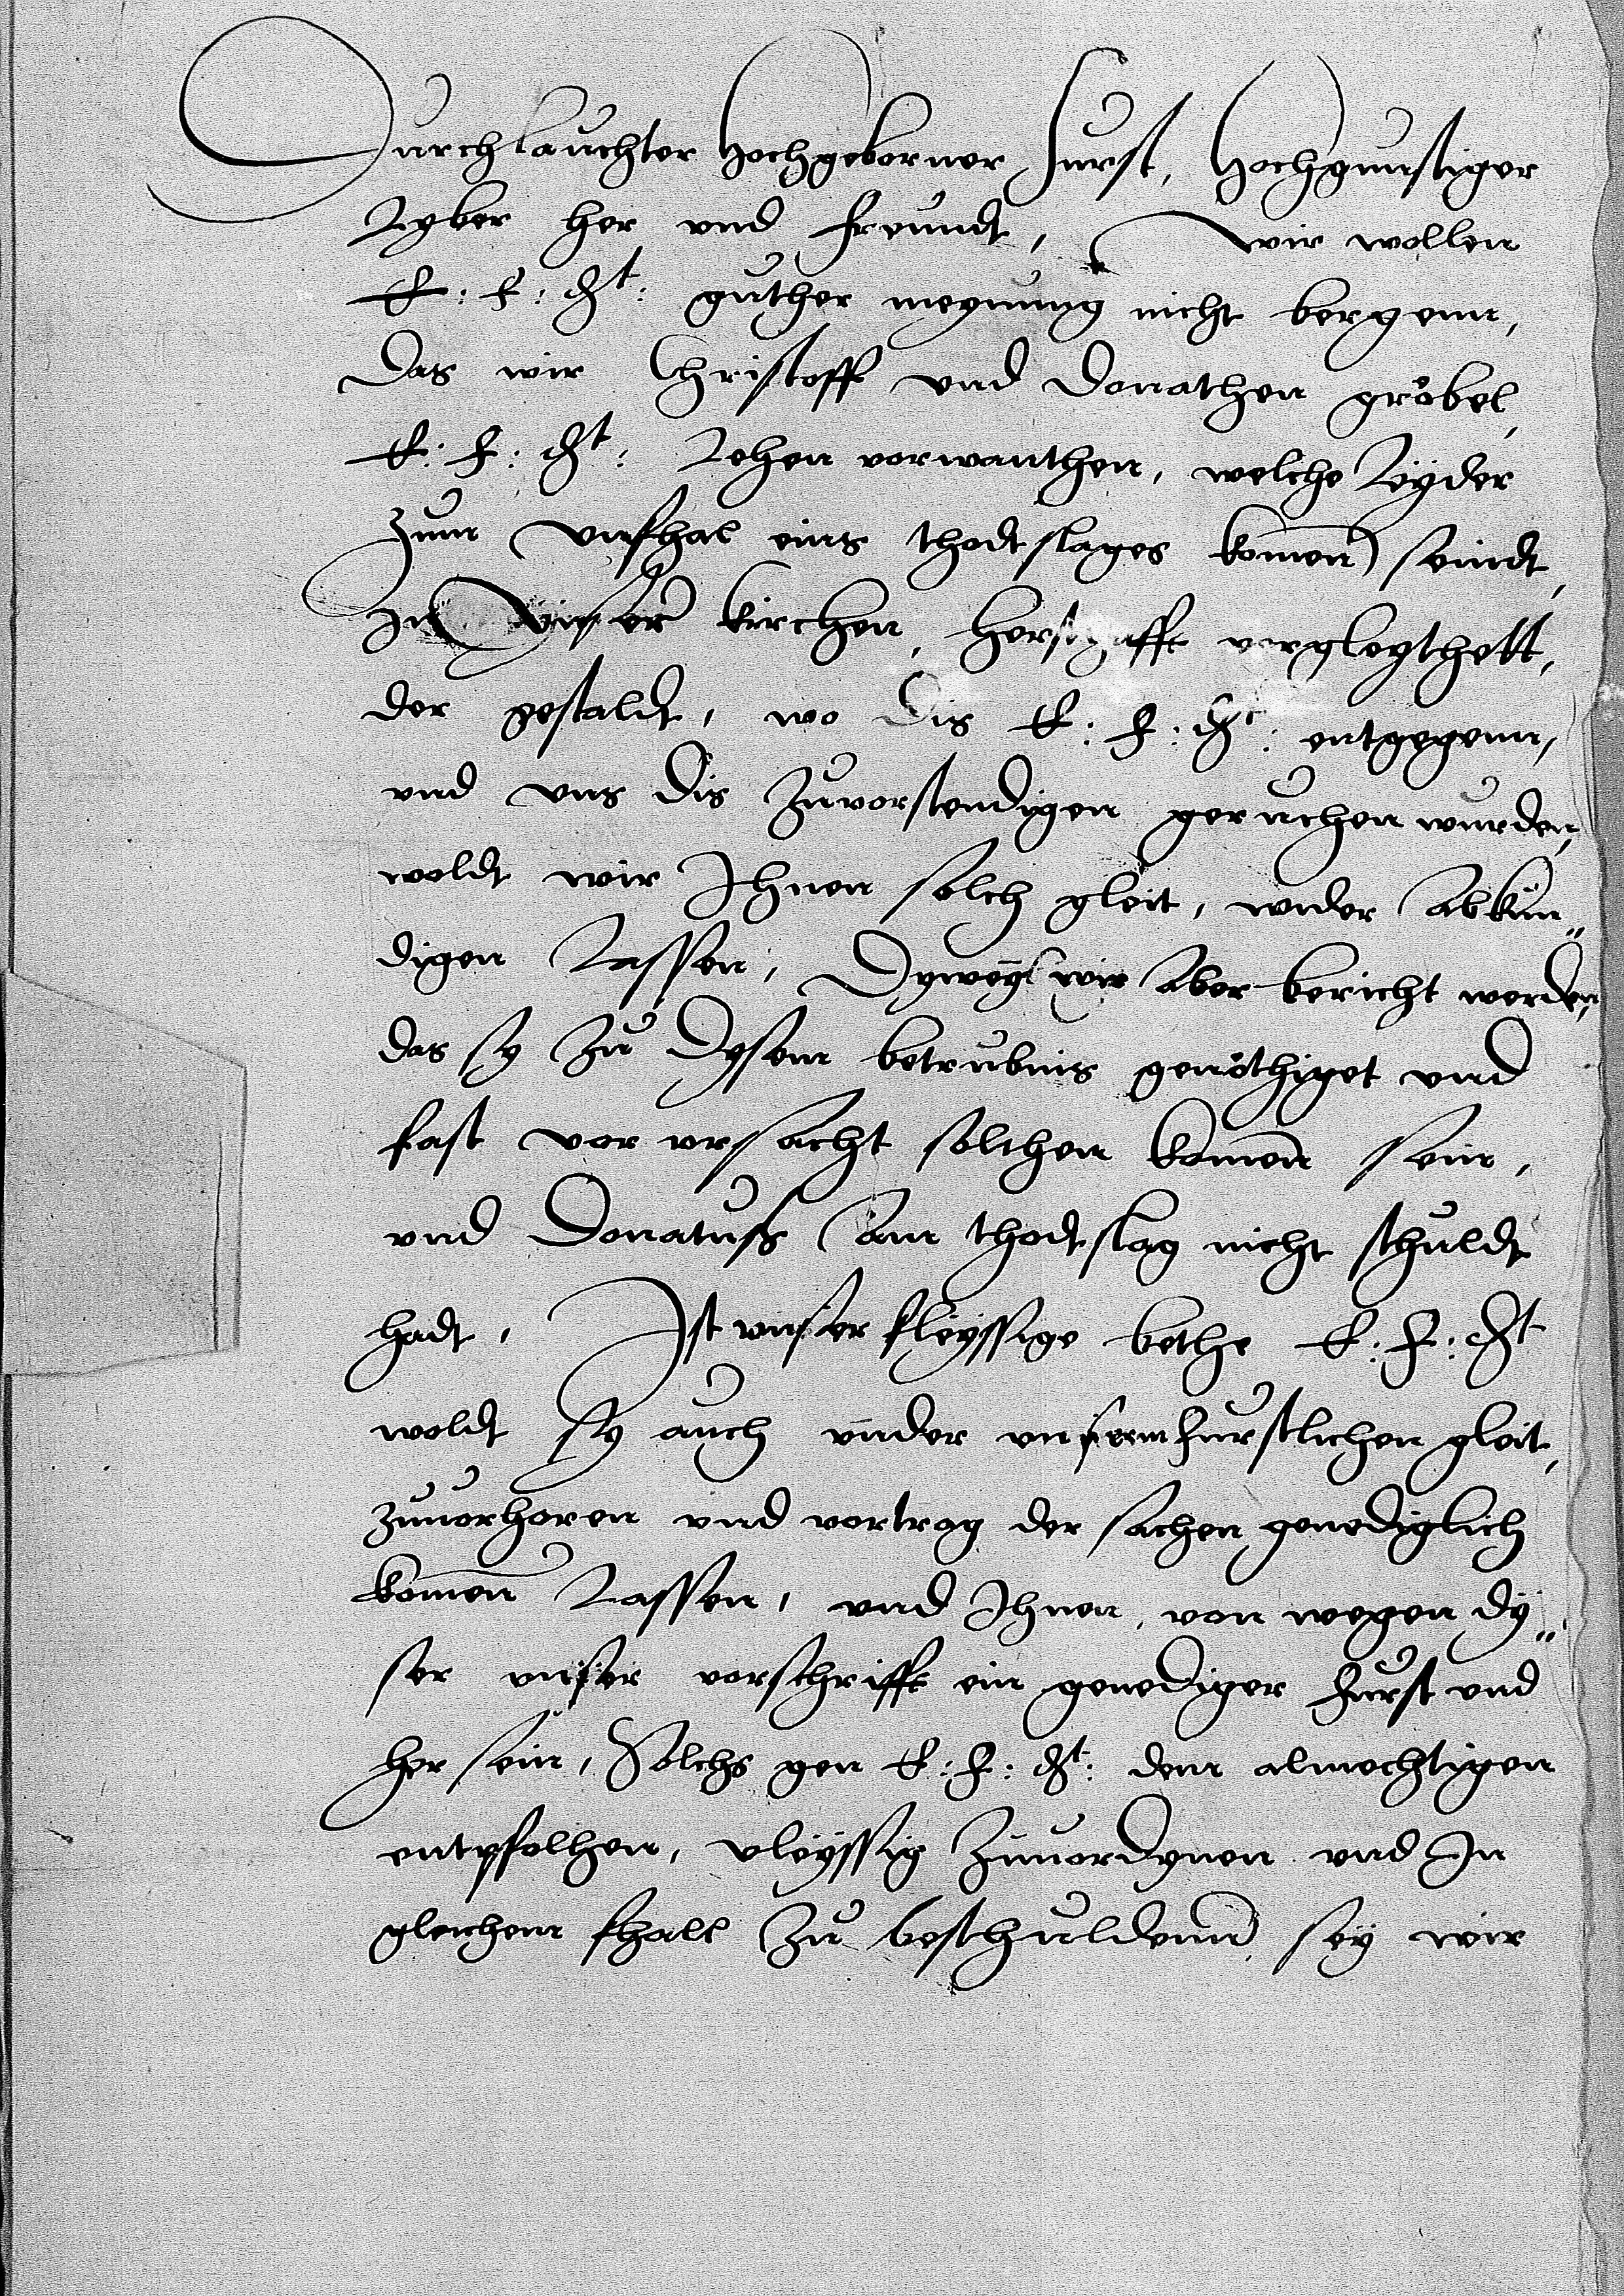 Durchlauchter Hochgeborner Furst, Hochgunstiger
Lyber her vnd freundt, Wir wollen
E: F: Gt: guther meynung nicht bergenn,
Das wir Christoff vnd Donathen gröbel,
E: F: Gt: Lehen vorwanthen, welche Leyder
zum vnfhal eins thodtslages komen seindt,
In vnser kirchen, herschafft vergleythett,
der gestaldt, wo dis E: F: Gt: entgegenn,
vnd vns dis zuvorstendigen geruchen wurden,
woldt wir Ihnen solch gleit, wider Abkun„
digen Lassen, Dyweyl wir Aber bericht werden,
das sy zu dysem betrubnis genöthiget vnd
fast vor vrsacht solchen komen sein,
vnd Donatuss Am thodtslag nicht schuldt
hadt, Ist vnser fleyssige bethe E: F: Gt
woldt sy auch vnder vnserm furstlichen gleit,
zuuorhoren vnd vortrag der sachen genediglich
komen Lassen, vnd Ihnen, von wegen dy„
ser vnser vorschrifft ein genediger furst vnd
her sein, Solchs gen E: F: Gt: dem almechtigen
entpfolhen, vleyssig zuuordynen vnd In
gleichem fhall zu beschuldenn sey wir